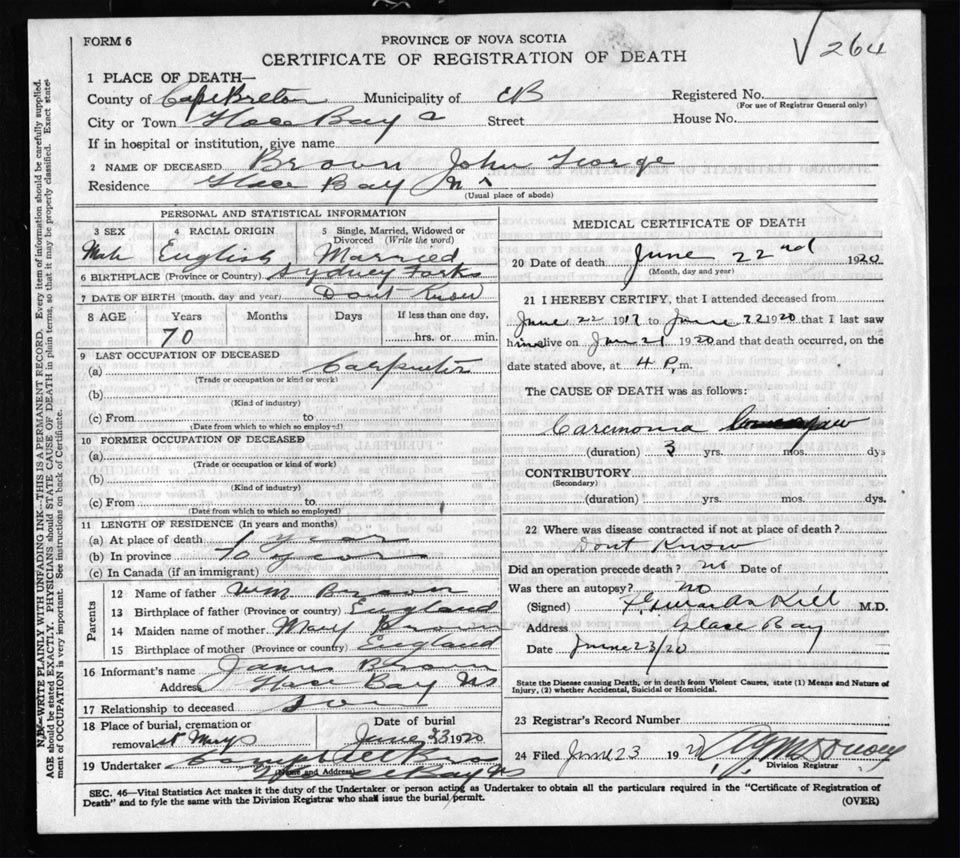 √264
FORM 6
PROVINCE OF NOVA SCOTIA
CERTIFICATE OF REGISTRATION OF DEATH
1 PLACE OF DEATH—
County of Cape Breton Municipality of CB Registered No.
(For use of Registrar General only)
City or Town Glace Bay Street House No.
If in hospital or institution, give name
2 NAME OF DECEASED Brown John George
Residence Glace Bay NS
(Usual place of abode)
PERSONAL AND STATISTICAL INFORMATION
3 SEX 4 RACIAL ORIGIN 5 Single, Married, Widowed or Divorced (Write the word)
Male English Married
6 BIRTHPLACE (Province or Country) Sydney Forks
7 DATE OF BIRTH (month, day and year) Dont Know
8 AGE Years Months Days If less than one day,
70 hrs. or min.
9 LAST OCCUPATION OF DECEASED
(a) Carpenter
(Trade or occupation or kind or work)
(b)
(Kind of industry)
(c) From to
(Date from which to which so employed)
10 FORMER OCCUPATION OF DECEASED
(a)
(Trade or occupation or kind of work)
(b)
(Kind of industry)
(c) From to
(Date from which to which so employed)
11 LENGTH OF RESIDENCE (In years and months)
(a) At place of death year
(b) In province 70 years
(c) In Canada (if an immigrant)
Parents
12 Name of father Wm Brown
13 Birthplace of father (Province or country) England
14 Maiden name of mother Mary Brown
15 Birthplace of mother (Province or country) England
16 Informant's name James Brown
Address Glace Bay NS
17 Relationship to deceased Son
18 Place of burial, cremation or removal St Marys Date of burial June 23 1920
19 Undertaker Campbell
(Name and Address) Glace Bay NS
MEDICAL CERTIFICATE OF DEATH
20 Date of death June 22nd 1920
(Month, day and year)
21 I HEREBY CERTIFY, that I attended deceased from
June 22 1917 to June 22 1920 that I last saw
him alive on Jun 21 1920 and that death occurred, on the
date stated above, at 4 P. m.
The CAUSE OF DEATH was as follows:
Carcinoma jaw
(duration) 3 yrs. mos. dys
CONTRIBUTORY
(Secondary)
(duration) yrs. mos. dys.
22 Where was disease contracted if not at place of death?
Dont Know
Did an operation precede death? no Date of
Was there an autopsy? NO
(Signed) M.D.
Address Glace Bay
Date June 23/20
State the Disease causing Death, or in death from Violent Causes, state (1) Means and Nature of
Injury, (2) whether Accidental, Suicidal or Homicidal.
23 Registrar's Record Number
24 Filed June 23 192
Division Registrar
SEC. 46—Vital Statistics Act makes it the duty of the Undertaker or person acting as Undertaker to obtain all the particulars required in the "Certificate of Registration of
Death" and to fyle the same with the Division Registrar who shall issue the burial permit.
(OVER)
N.B.—WRITE PLAINLY WITH UNFADING INK—THIS IS A PERMANENT RECORD. Every item of information should be carefully supplied.
AGE should be stated EXACTLY. PHYSICIANS should STATE CAUSE OF DEATH in plain terms, so that it may be properly classified. Exact state-
ment of OCCUPATION is very important. See instructions on back of Certificate.